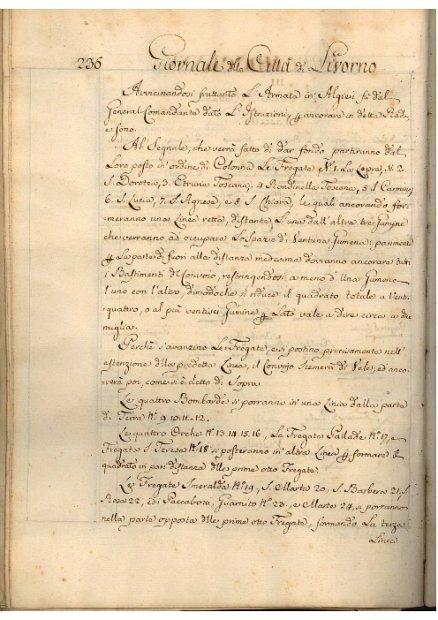 236 Giornale della Città di Livorno
Avvicinandosi frattanto L'Armata in Algieri fù dal
General Comandante dato L'Istruzione p ancorare in detta Rada,
e sono.
Al Segnale, che verrà fatto di dar fondo partiranno dal
Loro posto in ordine di Colonna Le Fregate, N.º 1. La Cupra, N. 2
S. Dorotea, 3. Etruria Toscana, 4 Rondinella Toscana, 5 S. Carmine,
6. S. Lucia, 7. S. Agnesa, e 8 S. Chiara, le quali ancorando for=
meranno una Linea retta, distante L'una dall'altra tre Gumine
che verranno ad occupare Lo Spazio di Ventuna Gumena: parimente
p La parte di fuori alla distanza medesima dovranno ancorare tutti
i Bastimenti del Convoio, restringendosi a meno d'Una Gumena
l'uno con l'altro, dimodochè si riduca il quadrato totale a Venti=
quattro, o al più ventisei Gumine p Lato vale a dire circa a due
miglia.
Perchè s'avanzino Le Fregate, e si postino precisamente nell'
estenzione della predetta Linea, il Convojo scemerà di Vele, ed anco=
rerà poi, come si è detto di Sopra.
Le quattro Bombarde si porranno in una Linea dalla parte
di Terra N.º 9. 10. 11. 12.
Le quattro Orche N.º 13. 14. 15. 16, La Fregata Pallade N.º 17, e
Fregata S. Teresa N.º 18 si posteranno in altra Linea p formare il
quadrato in pari distanza delle prime otto Fregate.
Le Fregate Smeralda N.º 19, S. Marta 20, S. Barbera 21, S.
Rosa 22, di Garnito N.º 23, e Marte 24, si porranno
nella parte opposta delle prime otto Fregate, formando La terza
Linea